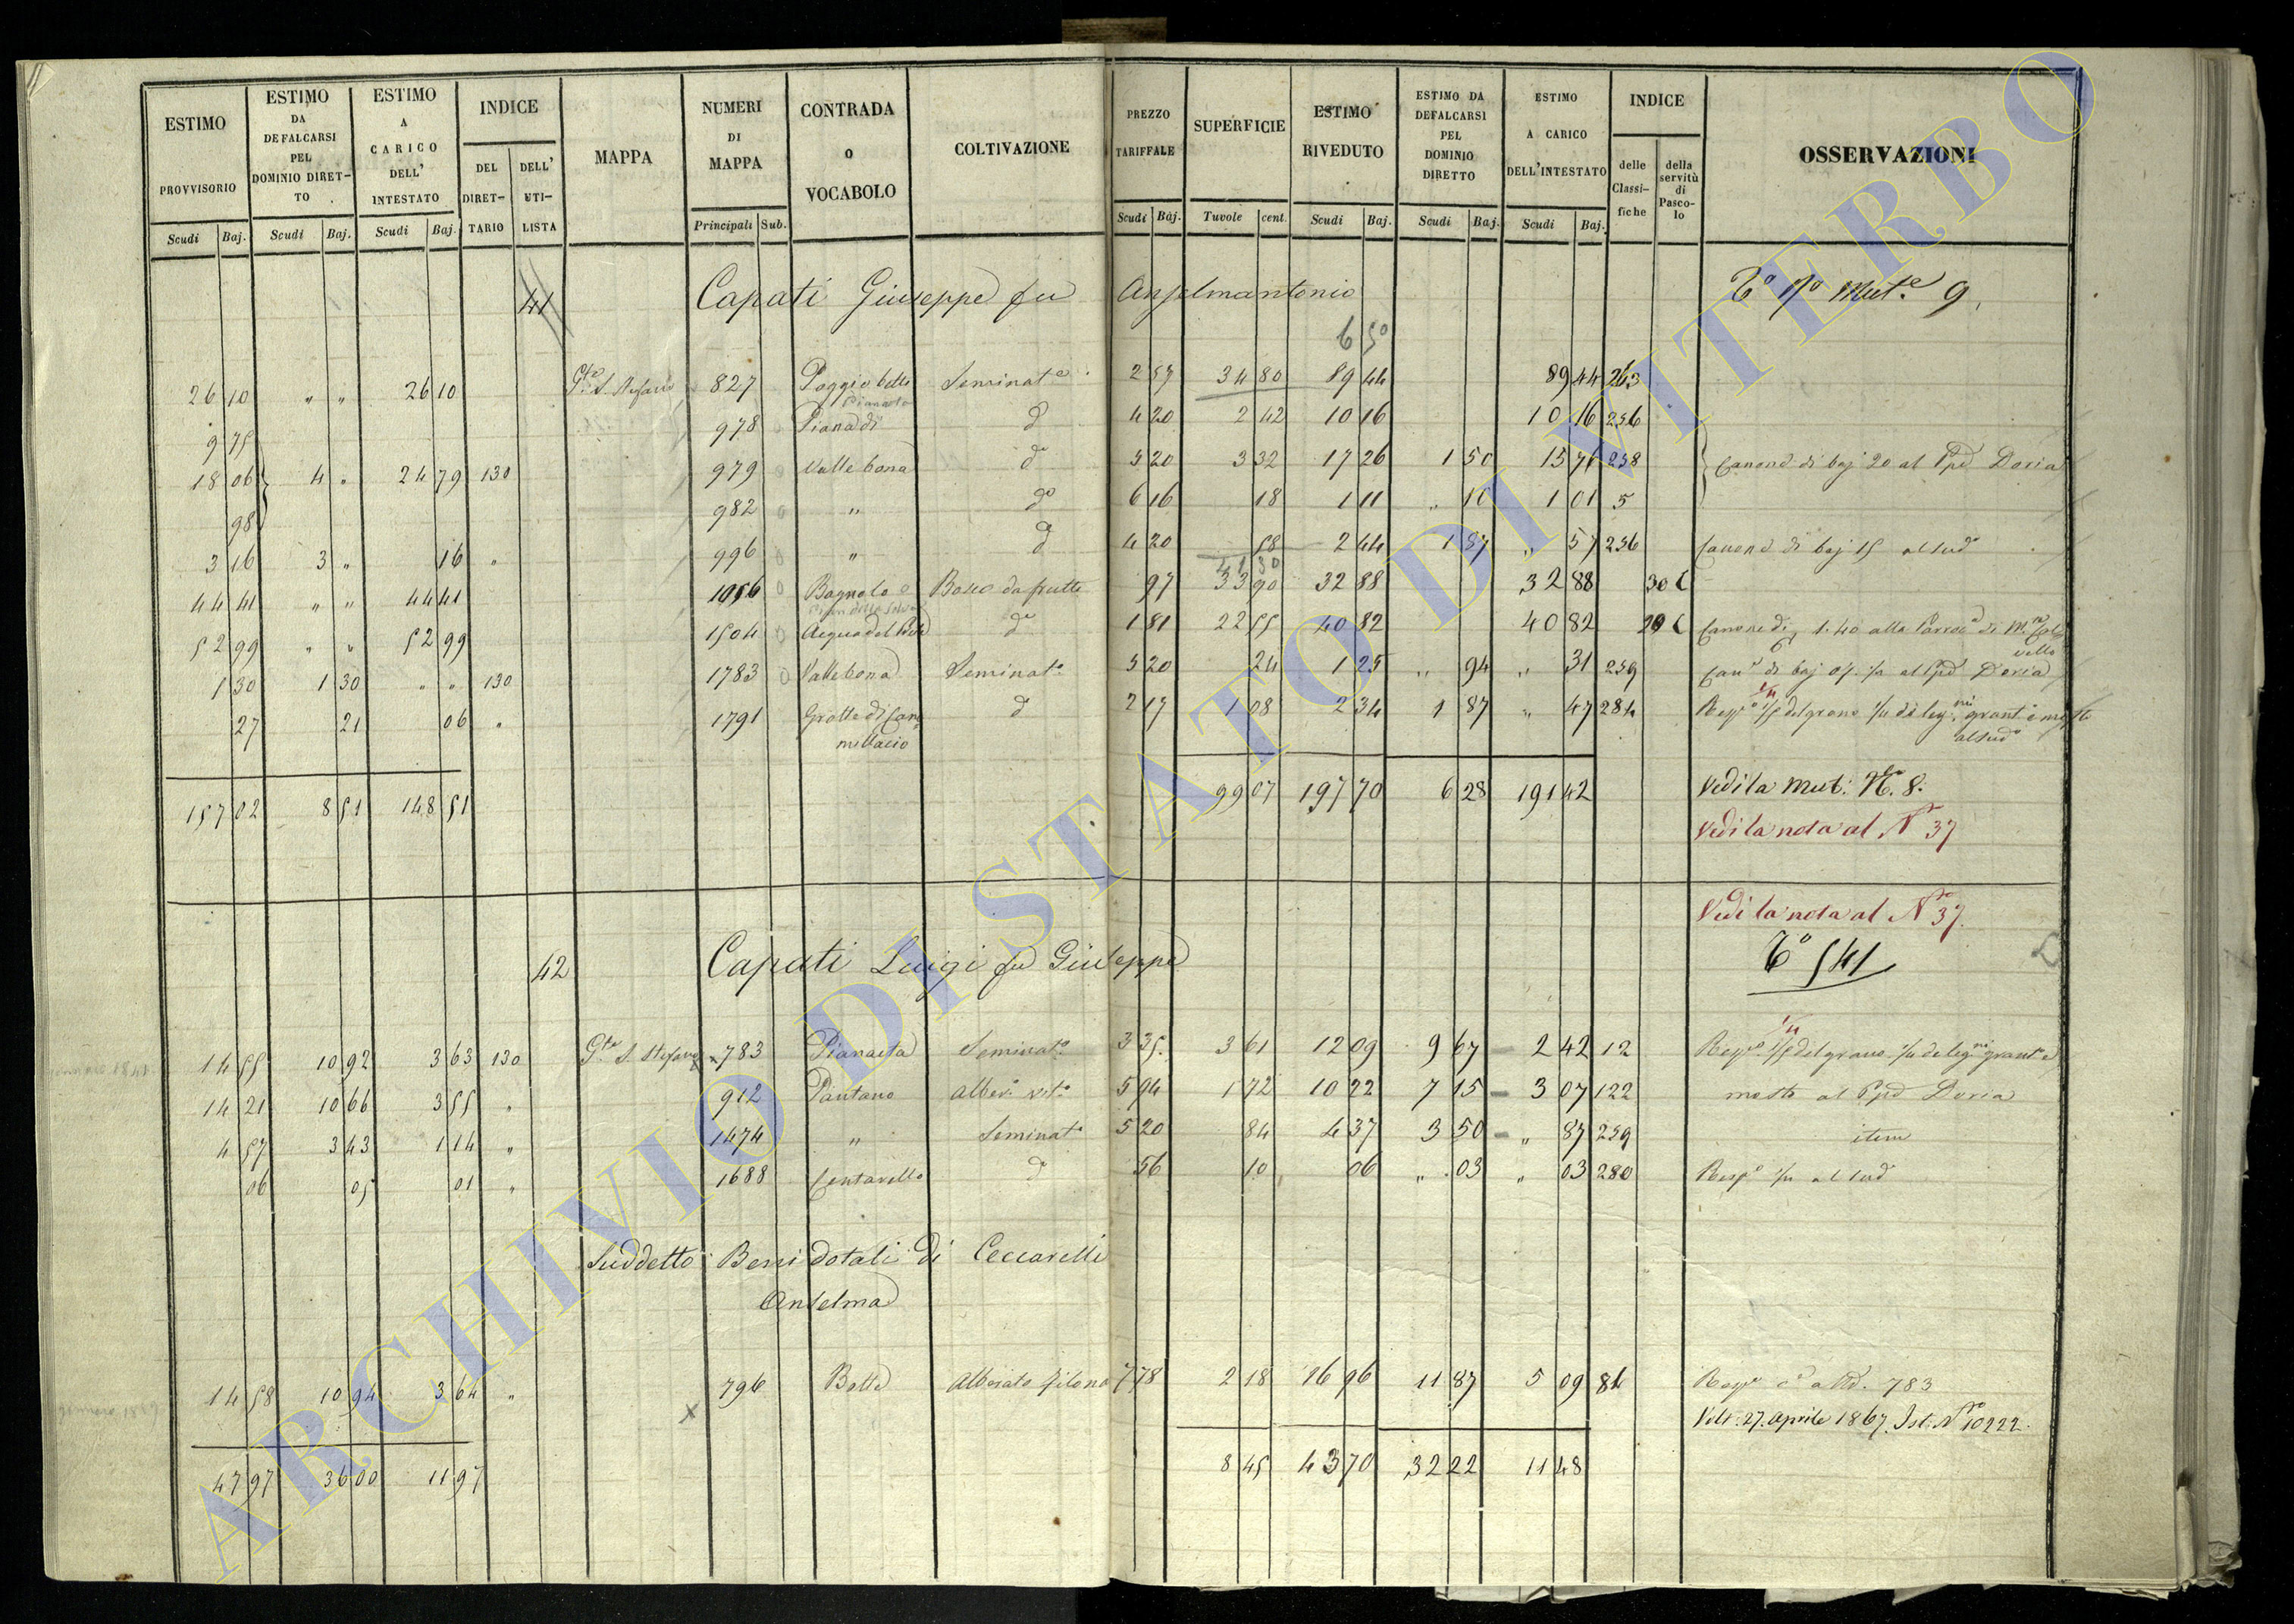 ESTIMO PROVVISORIO Scudi Baj.
ESTIMO DA DEFALCARSI PEL DOMINIO DIRET-TO Scudi Baj.
ESTIMO A CARICO DELL' INTESTATO Scudi Baj.
INDICE DEL DIRET-TARIO DELL' UTI-LISTA
MAPPA
NUMERI DI MAPPA Principali Sub.
CONTRADA O VOCABOLO
COLTIVAZIONE
PREZZO TARIFFALE Scudi Baj.
SUPERFICIE Tavole cent.
ESTIMO RIVEDUTO Scudi Baj.
ESTIMO DA DEFALCARSI PEL DOMINIO DIRETTO Scudi Baj.
ESTIMO A CARICO DELL'INTESTATO Scudi Baj.
INDICE delle Classi-fiche della servitù di Pasco-lo
OSSERVAZIONI
41 Capati Giuseppe fu Anselmantonio Mut.e 9
6 50
26 10 " " 26 10 G.te S. Stefano 827 Poggio bello Seminat.o 2 57 34 80 89 44 89 44 263
Pianaeta
9 75 978 Piana di d 4 20 2 42 10 16 10 16 256
18 06 4 " 24 79 130 979 Valle bona d.o 5 20 3 32 17 26 1 50 15 76 258 Canone di baj 20 al Ppe Doria
98 982 " d.o 6 16 18 1 11 " 10 1 01 5
3 16 3 " 16 " 996 " d 4 20 58 2 44 1 87 " 57 256 Canone di baj 15 al sud.o
41 30
44 41 " " 44 41 1056 Bagnolo Bosco da frutto 97 33 90 32 88 32 88 30 C
52 99 " " 52 99 1504 Acqua del 1 81 22 55 40 82 40 82 29 C Canone di 1.40 alla di M.te Cal
vello
1 30 1 30 " " 130 1783 Valle bona Seminat.o 5 20 24 1 25 " 94 " 31 259 Can.e di baj 07 al Ppe Doria
27 21 06 " 1791 Grotte di Cam d 2 17 1 08 2 34 1 87 " 47 284 Risp.a 1/5 del grano 1/4 di leg.mi grant.e mosto
millacio al sud.o
157 02 8 51 148 51 99 07 197 70 6 28 191 42 Vedi la Mut: N.o 8.
Vedi la nota al N.o 37
Vedi la nota al N.o 37.
42 Capati Luigi fu Giuseppe 541
14 55 10 92 3 63 130 G.te S. Stefano 783 Pianaeta Seminat.o 3 35 3 61 12 09 9 67 2 42 12 Risp.a 1/5 del grano 1/4 de leg.mi grant.e
14 21 10 66 3 55 " 912 Pantano Alber.o vit.o 5 94 1 72 10 22 7 15 3 07 122 mosto al Ppe Doria
4 57 3 43 1 14 " 1474 " Seminat.o 5 20 84 4 37 3 50 " 87 259 item
06 05 01 " 1688 Centarello d 56 10 06 " 03 " 03 280 Risp.a 1/4 al sud
Suddetto Beni dotali di Ceccarelli
Anselma
14 58 10 94 3 64 " 796 Botte Alberato filona 7 78 2 18 16 96 11 87 5 09 84 Risp.a 783
x Volt. 27. Aprile 1867. Ist. N.o 10222.
47 97 36 00 11 97 8 45 43 70 32 22 11 48
ARCHIVIO DI STATO DI VITERBO